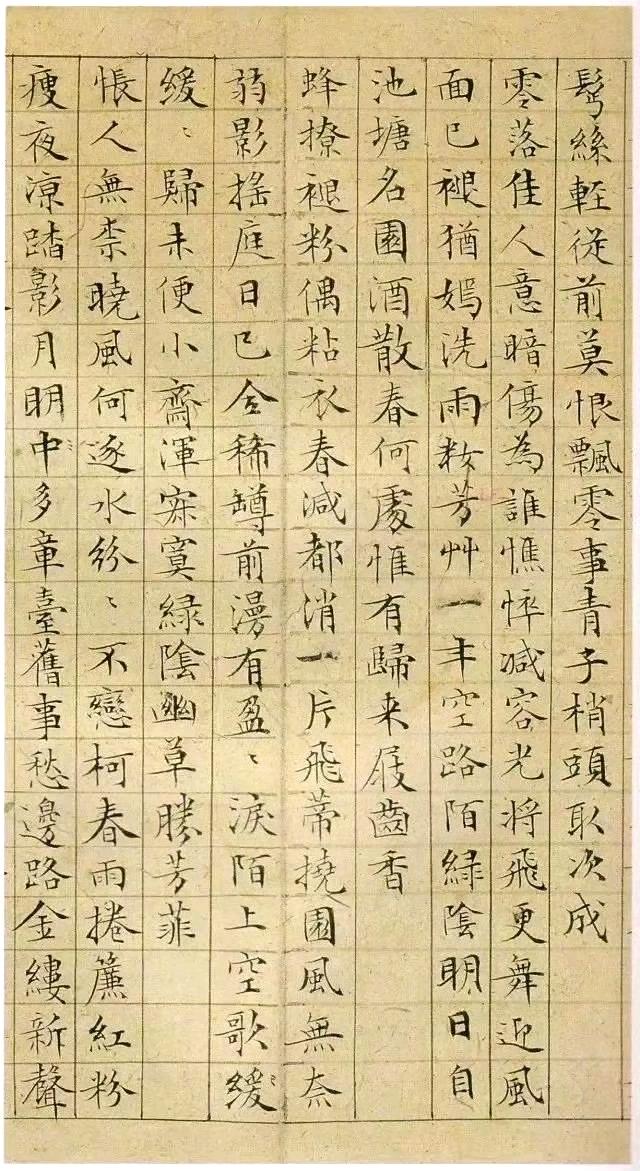 髩絲輕從前莫恨飄零事青子梢頭取次成
零落佳人意暗傷為誰憔悴減容光將飛更舞迎風
面已褪猶嫣洗雨粧芳艸一年空路陌綠陰明日自
池塘名園酒散春何處惟有歸来屐齒香
蜂撩褪粉偶粘衣春減都消一片飛蒂撓園風無奈
弱影搖庭日已全稀罇前漫有盈〻淚陌上空歌緩
緩〻歸未便小齋渾寂寞綠陰幽草勝芳菲
悵人無柰曉風何逐水紛〻不戀柯春雨捲簾紅粉
瘦夜凉踏影月明中多章臺舊事愁邊路金縷新聲